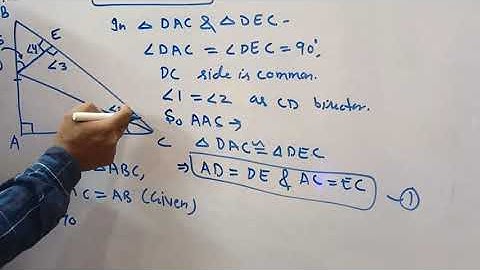 B
E
∠4
∠3
∠2
A
C
In △ DAC & △ DEC -
∠DAC = ∠DEC = 90°.
DC side is common.
∠1 = ∠2 as CD bisector.
So AAS →
△ DAC ≅ △ DEC
⇒ AD = DE & AC = EC
①
ABC,
C = AB (Given)